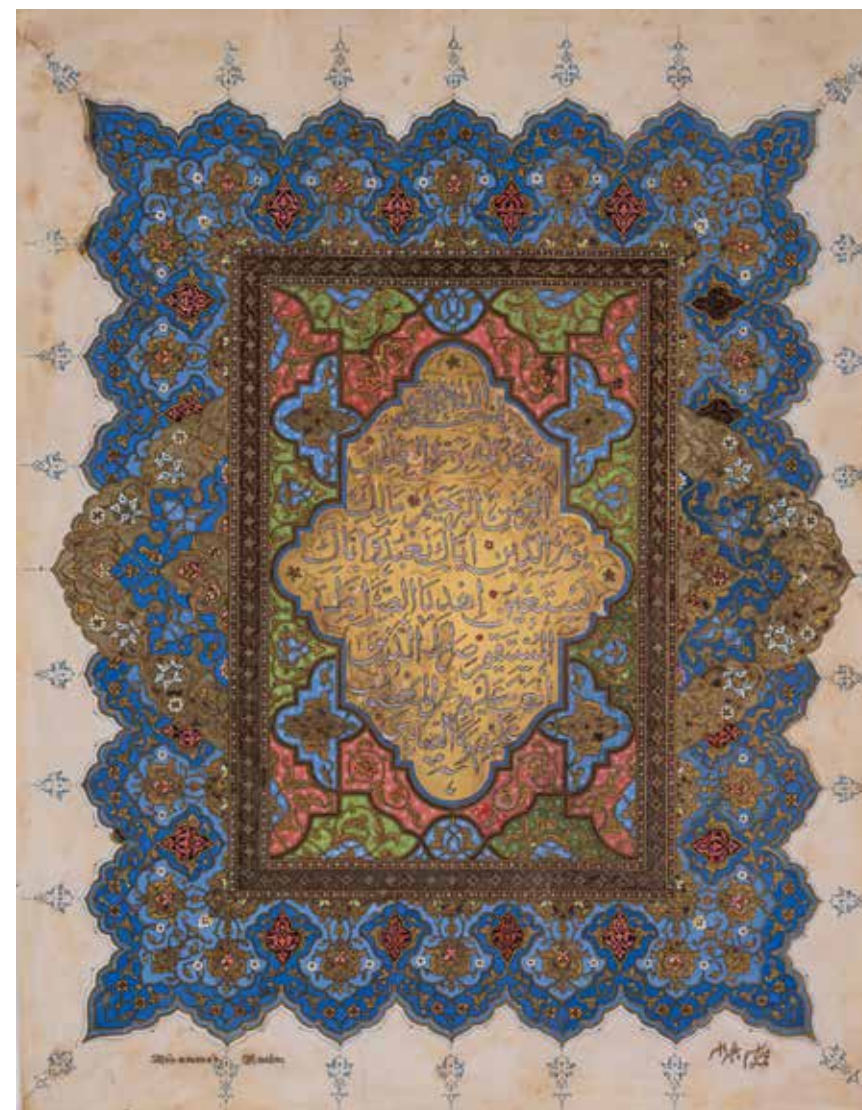 بسم الله الرحمن الرحيم
الحمد لله رب العالمين
الرحمن الرحيم مالك
يوم الدين اياك نعبد واياك
نستعين اهدنا الصراط
المستقيم صراط الذين
انعمت عليهم غير المغضوب
عليهم ولا الضالين